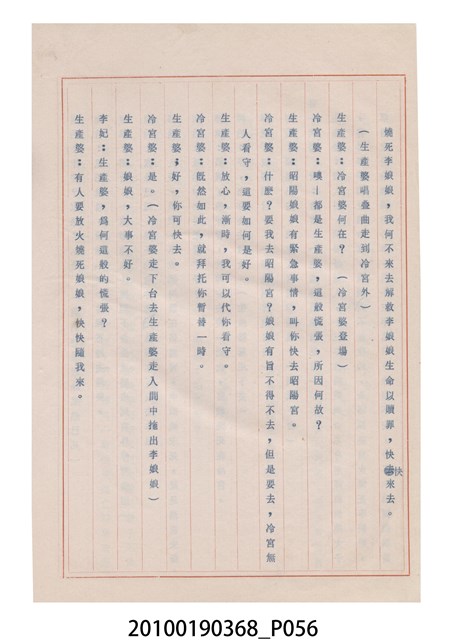 燒死李娘娘，我何不來去解救李娘娘生命以贖罪，快快來去。
（生產婆唱叠曲走到冷宮外）
生產婆：冷宮婆何在？（冷宮婆登場）
冷宮婆：噢－都是生產婆，這般慌張，所因何故？
生產婆：昭陽娘娘有緊急事情，叫你快去昭陽宮。
冷宮婆：什麽？要我去昭陽宮？娘娘有旨不得不去，但是要去，冷宮無
人看守，這要如何是好。
生產婆：放心，漸時，我可以代你看守。
冷宮婆：既然如此，就拜托你暫替一時。
生產婆；好，你可快去。
冷宮婆：是。（冷宮婆走下台去生產婆走入間中拖出李娘娘）
生產婆：娘娘，大事不好。
李妃：生產婆，爲何這般的慌張？
生產婆：有人要放火燒死娘娘，快快隨我來。
20100190368_P056